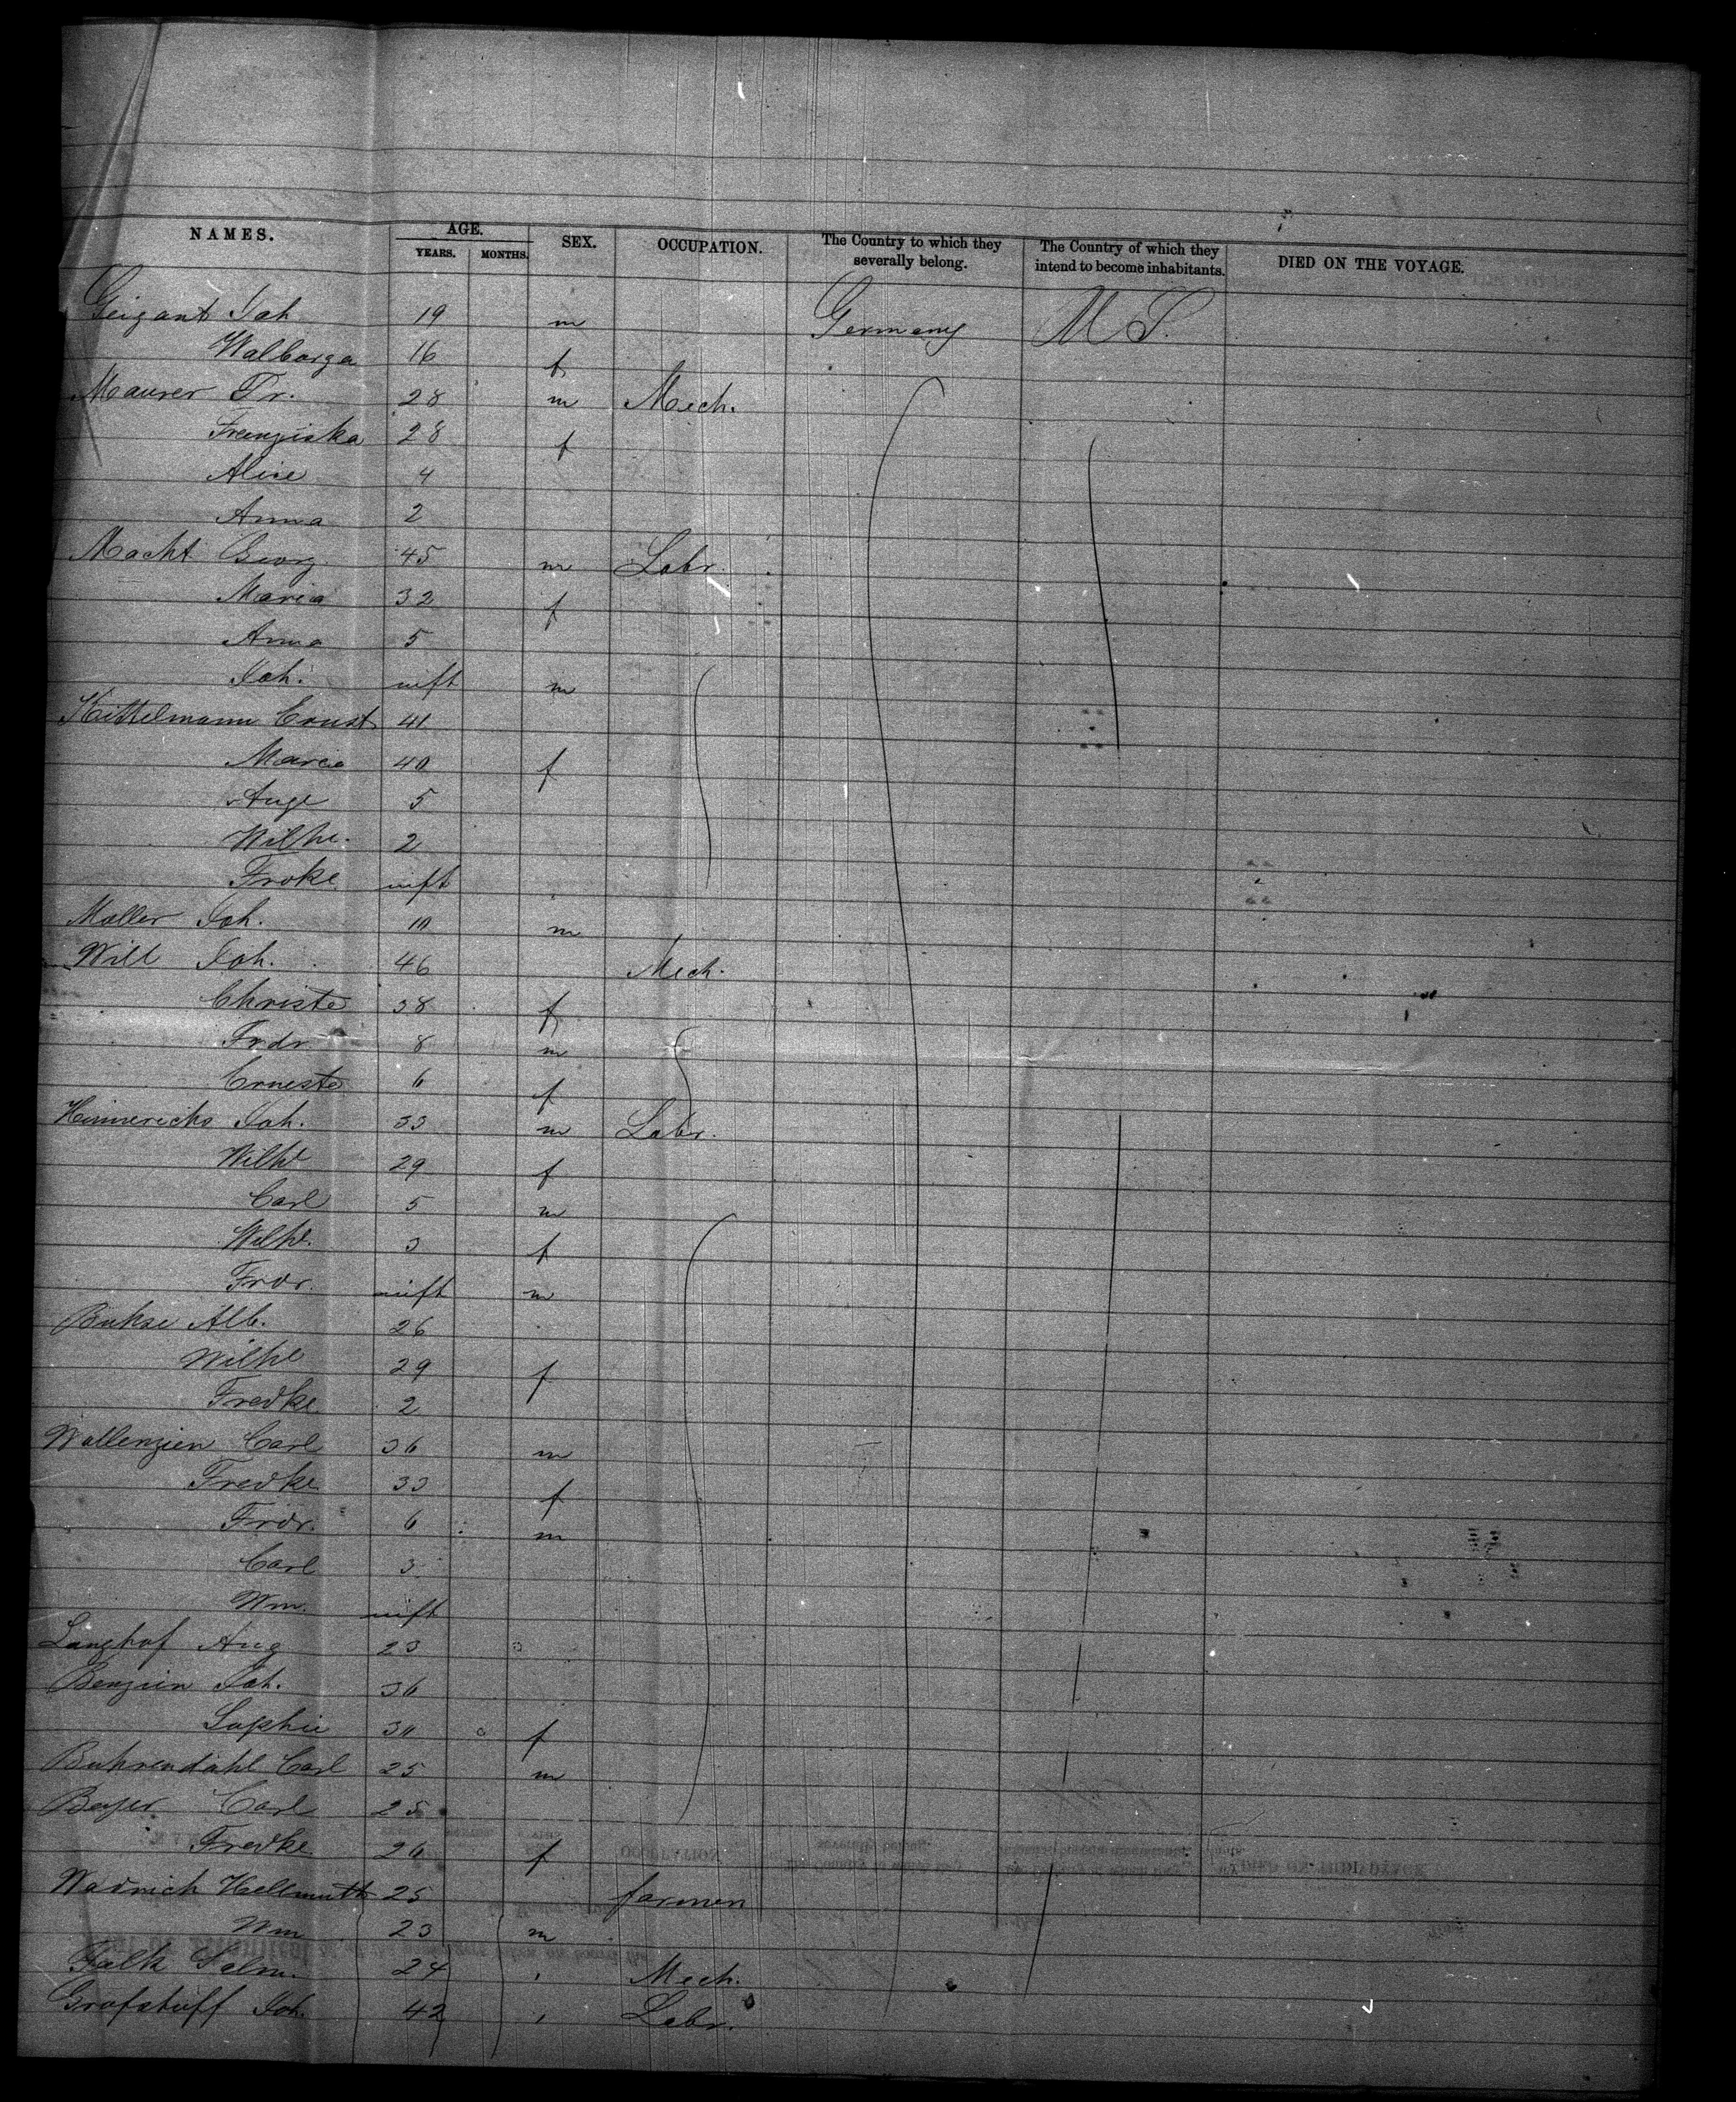 NAMES. AGE. YEARS. MONTHS. SEX. OCCUPATION. The Country to which they severally belong. The Country of which they intend to become inhabitants. DIED ON THE VOYAGE.
Geigant Joh 19 m Germany U S.
Walburga 16 f
Maurer Fr. 28 m Mech.
Franziska 28 f
Alice 4
Anna 2
Macht Georg 45 m Labr.
Maria 32 f
Anna 5
Joh. inft m
Kittelmann Ernst 41
Maria 40 f
Auge 5
Wilhe. 2
Frdke inft
Moller Joh. 10 m
Will Joh. 46 Mech.
Christe 38 f
Frdr. 8 m
Erneste 6 f
Hinnerichs Joh. 33 m Labr.
Wilhe 29 f
Carl 5 m
Wilhe. 3 f
Frdr. inft m
Buhse Alb. 26
Wilhe 29 f
Fredke 2
Wallenzien Carl 36 m
Fredke 33 f
Frdr. 6 m
Carl 3
Wm. inft
Langhof Aug 23
Benzien Joh. 36
Sophie 30 f
Buhrendahl Carl 25 m
Beyer Carl 25
Fredke 26 f
Wadnich Hellmuth 25 farmer
Wm 23 m
Falk Salm. 24 Mech.
Joh. 42 Labr.